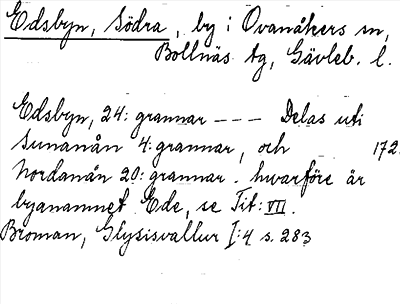 Edsbyn, Södra, by i Ovanåkers sn,
Bollnäs tg, Gävleb. l.
Edsbyn, 24: grannar --- Delas uti
Sunanån 4: grannar, och 172.
Nordanån 20: grannar. hvarföre är
byanamnet Ede, se Tit: VII.
Broman, Glysisvallur I:4 s. 283